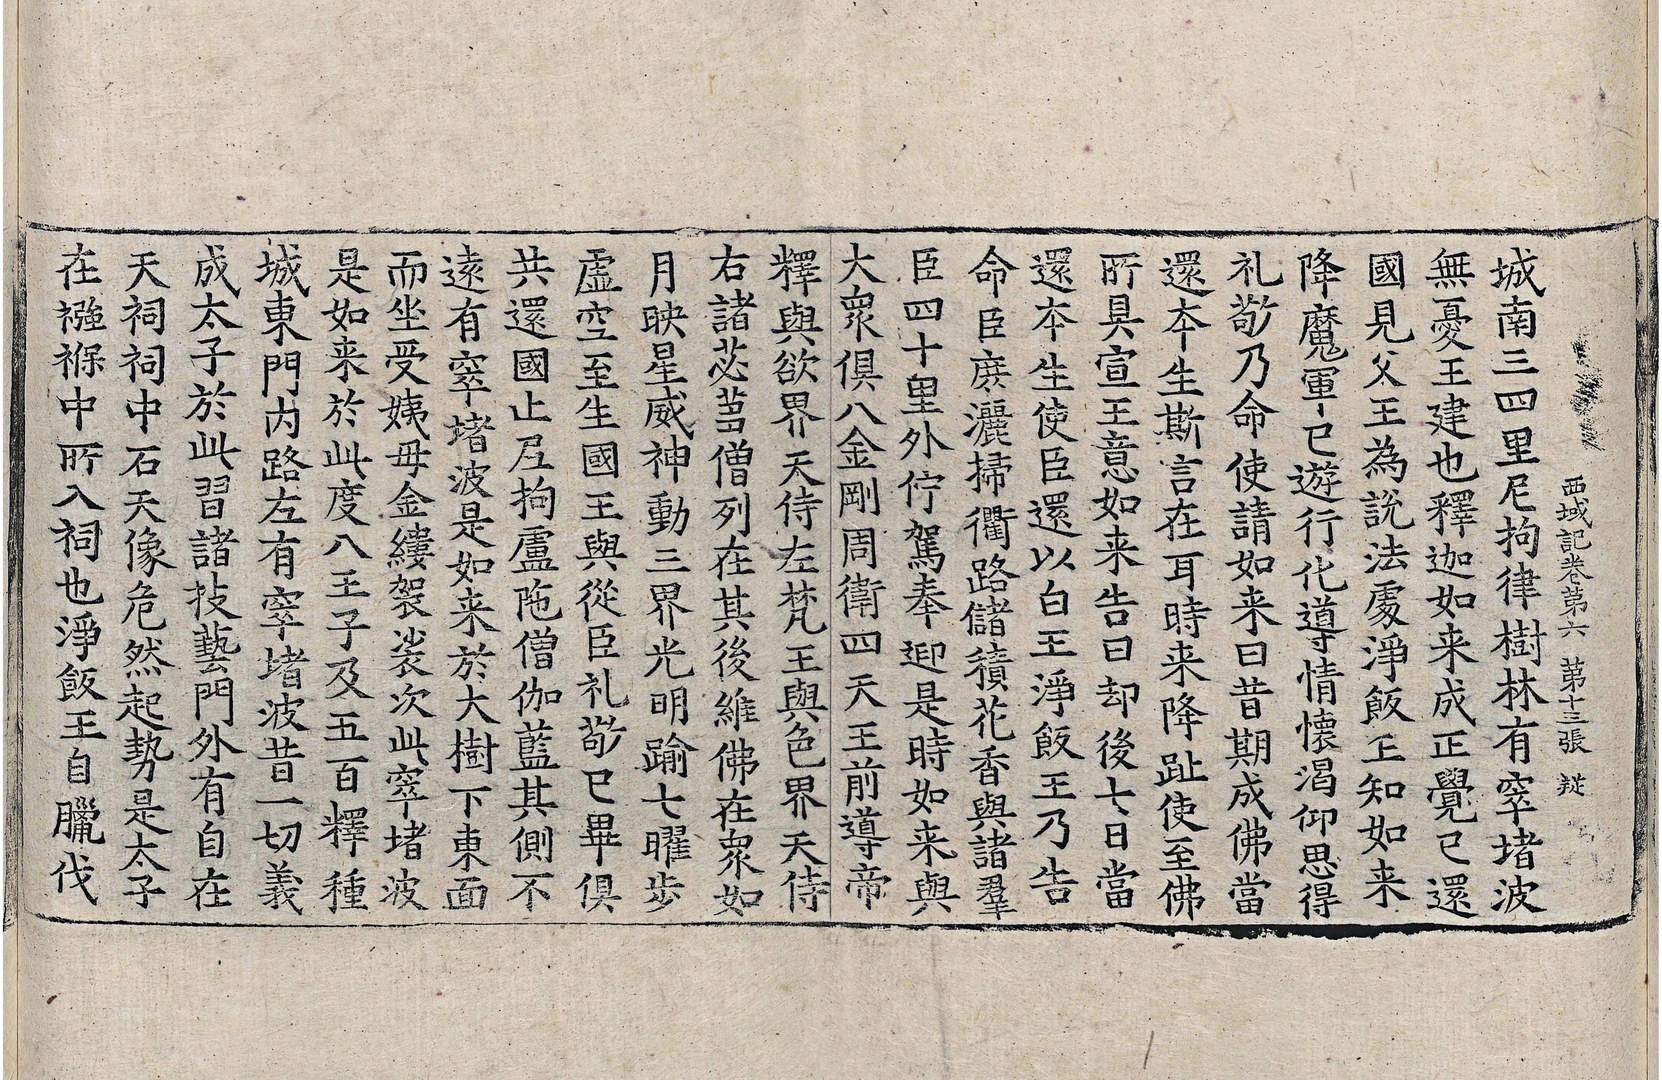 西域記卷第六　第十三張　㝡
城南三四里尼拘律樹林有窣堵波
無憂王建也釋迦如来成正覺已還
國見父王為説法處淨飯王知如来
降魔軍已遊行化導情懷渴仰思得
礼敬乃命使請如来曰昔期成佛當
還本生斯言在耳時来降趾使至佛
所具宣王意如来告曰却後七日當
還本生使臣還以白王淨飯王乃告
命臣庶灑掃衢路儲積花香與諸羣
臣四十里外佇駕奉迎是時如来與
大衆俱八金剛周衛四天王前導帝
釋與欲界天侍左梵王與色界天侍
右諸苾蒭僧列在其後維佛在衆如
月映星威神動三界光明踰七曜步
虛空至生國王與從臣礼敬已畢俱
共還國止尼拘盧陁僧伽藍其側不
遠有窣堵波是如来於大樹下東面
而坐受姨母金縷袈裟次此窣堵波
是如来於此度八王子及五百釋種
城東門内路左有窣堵波昔一切義
成太子於此習諸技藝門外有自在
天祠祠中石天像危然起勢是太子
在襁褓中所入祠也淨飯王自臘伐